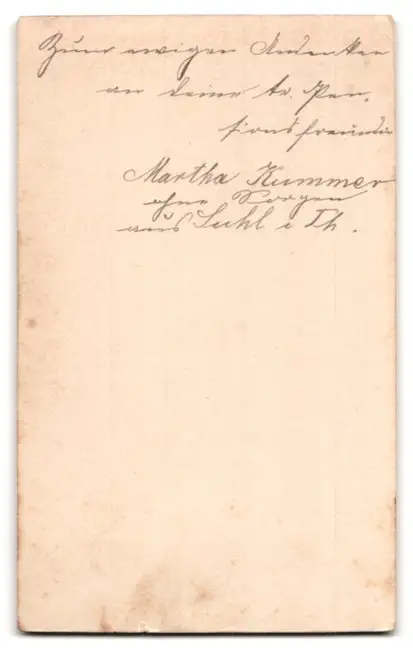 Zum ewigen Andenken
an deine tr. Pen-
sionsfreundin
Martha Kummer
ohne Sorgen
aus Suhl i Th.